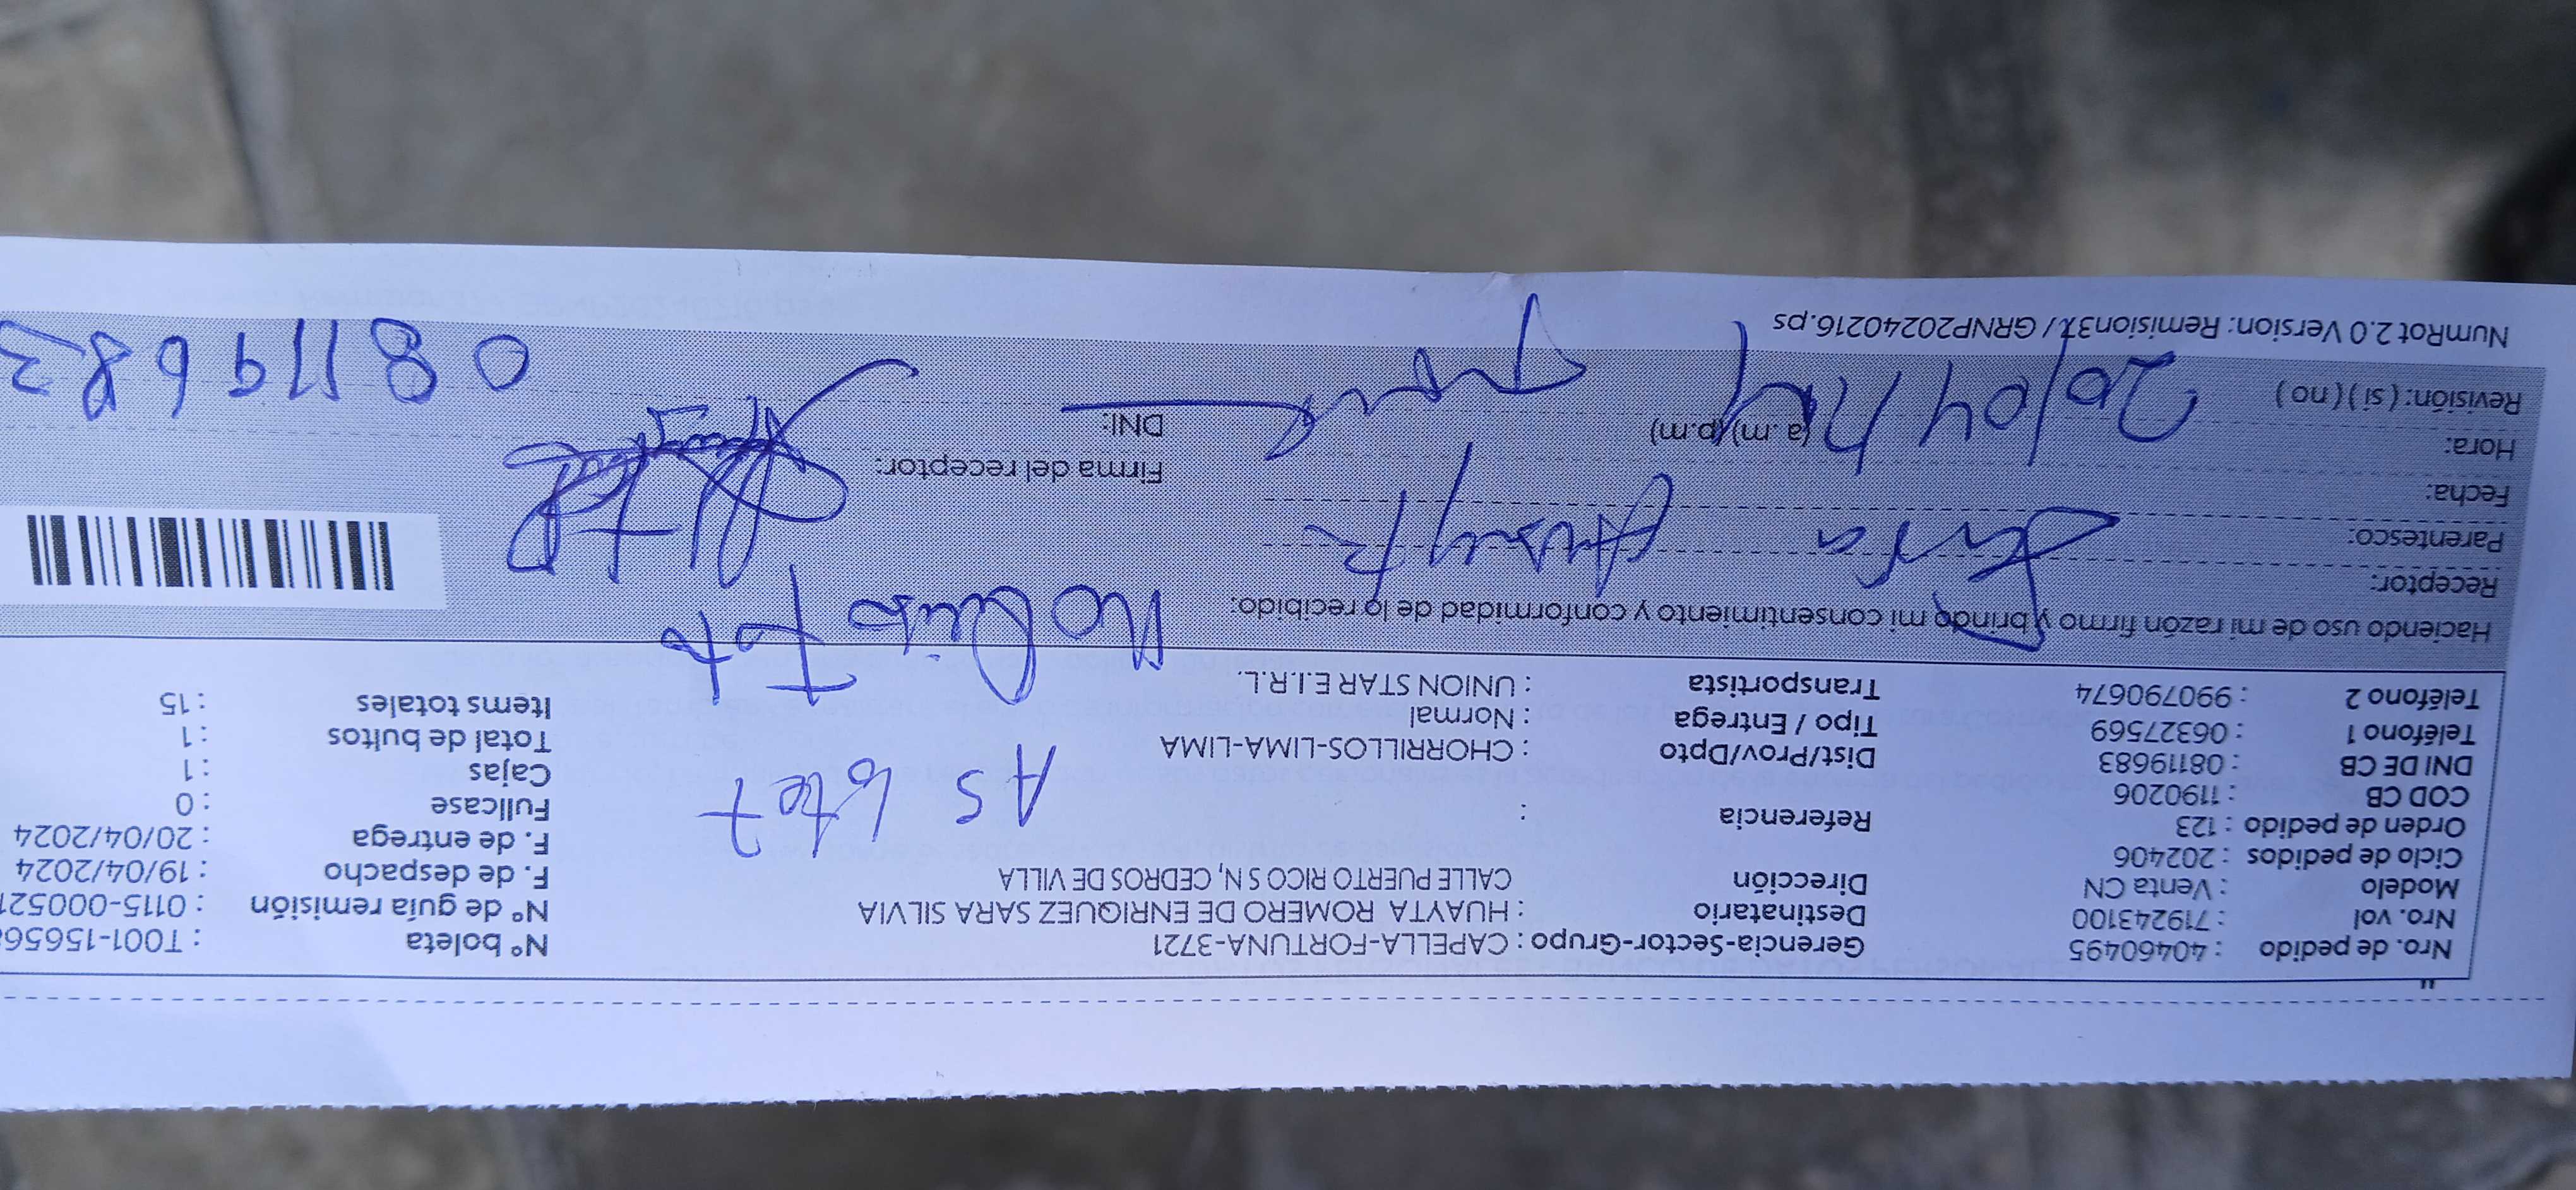 Nro. de pedido : 40460495 Gerencia-Sector-Grupo : CAPELLA-FORTUNA-3721 N° boleta : T001-15656
Nro. vol : 719243100 Destinatario : HUAYTA ROMERO DE ENRIQUEZ SARA SILVIA N° de guía remisión : 0115-00052
Modelo : Venta CN Dirección CALLE PUERTO RICO S N, CEDROS DE VILLA F. de despacho : 19/04/2024
Ciclo de pedidos : 202406 F. de entrega : 20/04/2024
Orden de pedido : 123 Referencia : AS lote 7 Fullcase : 0
COD CB : 1190206 Cajas : 1
DNI DE CB : 08119683 Dist/Prov/Dpto : CHORRILLOS-LIMA-LIMA Total de bultos : 1
Teléfono 1 : 06327569 Tipo / Entrega : Normal Items totales : 15
Teléfono 2 : 990790674 Transportista : UNION STAR E.I.R.L.
Haciendo uso de mi razón firmo y brindo mi consentimiento y conformidad de lo recibido:
Receptor:
Parentesco:
Fecha:
Firma del receptor:
Hora: (a. m) (p.m)
DNI: 08119683
Revisión: ( si ) ( no )
NumRot 2.0 Version: Remision37 / GRNP20240216.ps